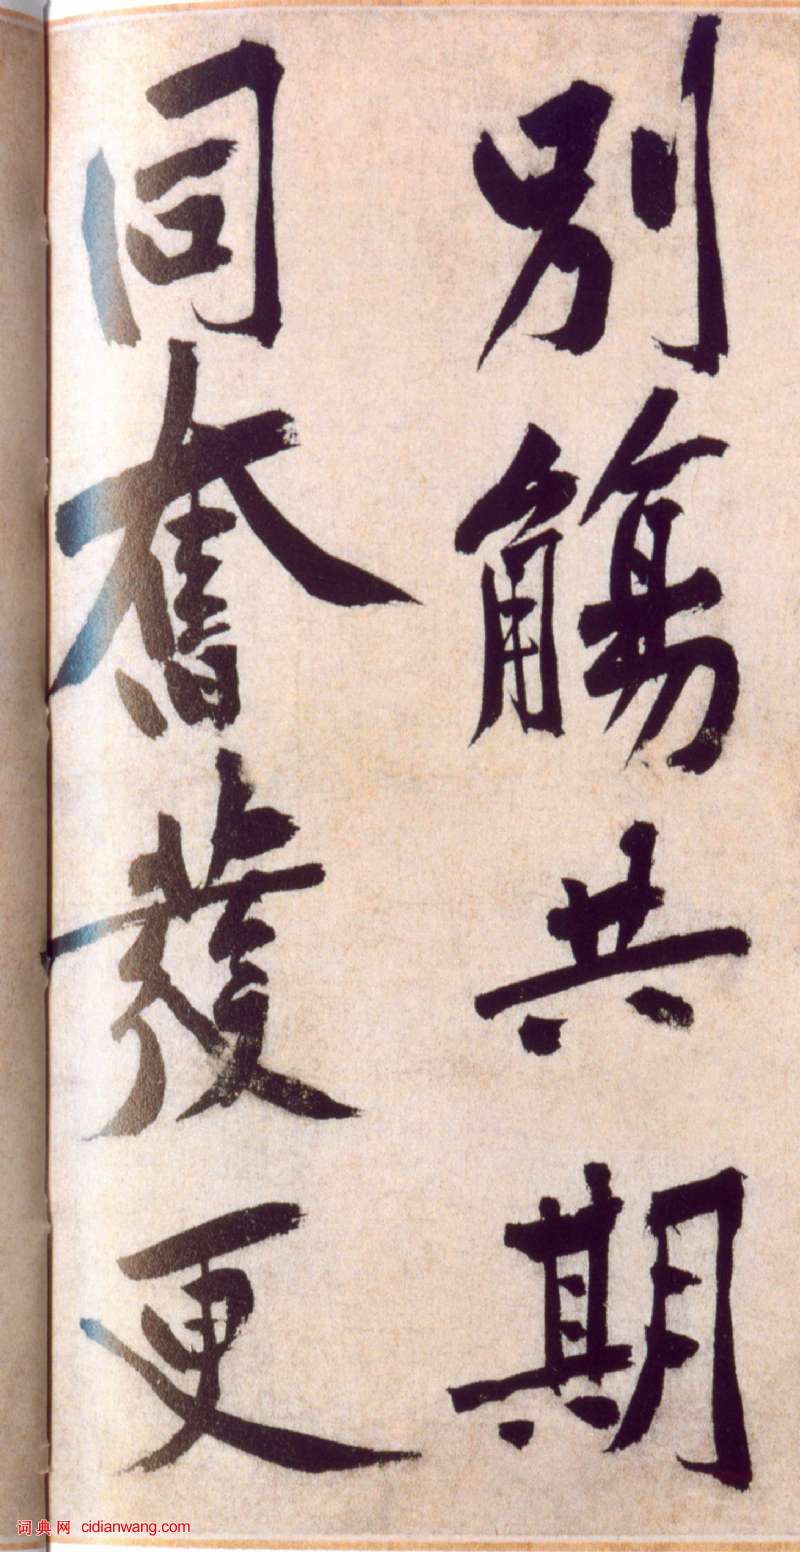 別觴共期
同奮發更
词典网 cidianwang.com